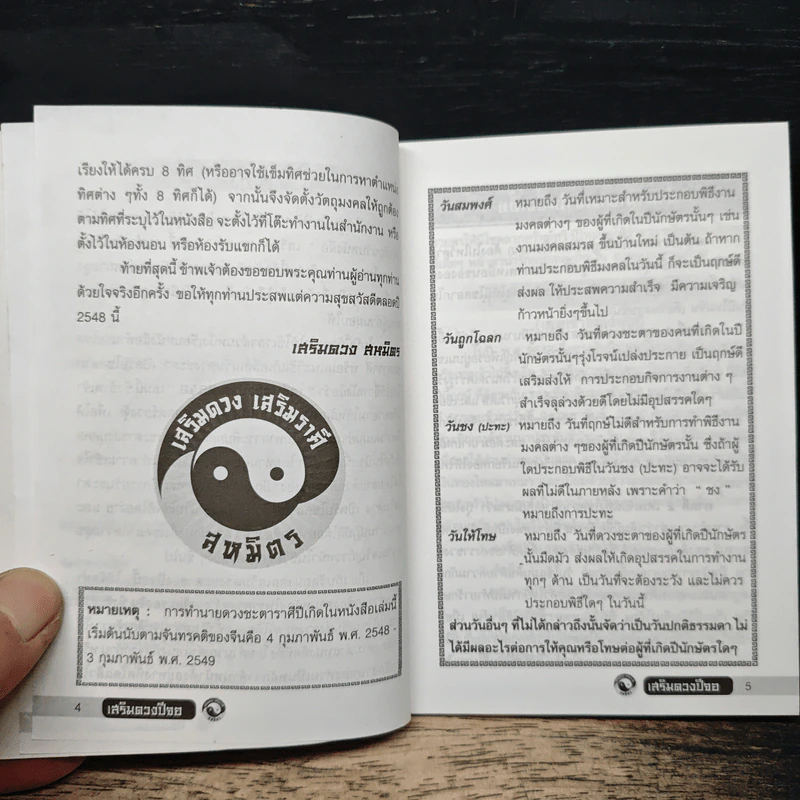 เรียงให้ได้ครบ 8 ทิศ (หรืออาจใช้เข็มทิศช่วยในการหาตำแหน่ง
ทิศต่าง ๆทั้ง 8 ทิศก็ได้) จากนั้นจึงจัดตั้งวัตถุมงคลให้ถูกต้อง
ตามทิศที่ระบุไว้ในหนังสือ จะตั้งไว้ที่โต๊ะทำงานในสำนักงาน หรือ
ตั้งไว้ในห้องนอน หรือห้องรับแขกก็ได้
ท้ายที่สุดนี้ ข้าพเจ้าต้องขอขอบพระคุณท่านผู้อ่านทุกท่าน
ด้วยใจจริงอีกครั้ง ขอให้ทุกท่านประสพแต่ความสุขสวัสดีตลอดปี
2548 นี้
เสริมดวง สหมิตร
เสริมดวง เสริมราศี
สหมิตร
หมายเหตุ : การทำนายดวงชะตาราศีปีเกิดในหนังสือเล่มนี้
เริ่มต้นนับตามจันทรคติของจีนคือ 4 กุมภาพันธ์ พ.ศ. 2548 -
3 กุมภาพันธ์ พ.ศ. 2549
4 เสริมดวงปีจอ
วันสมพงศ์ หมายถึง วันที่เหมาะสำหรับประกอบพิธีงาน
มงคลต่างๆ ของผู้ที่เกิดในปีนักษัตรนั้นๆ เช่น
งานมงคลสมรส ขึ้นบ้านใหม่ เป็นต้น ถ้าหาก
ท่านประกอบพิธีมงคลในวันนี้ ก็จะเป็นฤกษ์ดี
ส่งผล ให้ประสพความสำเร็จ มีความเจริญ
ก้าวหน้ายิ่งๆขึ้นไป
วันถูกโฉลก หมายถึง วันที่ดวงชะตาของคนที่เกิดในปี
นักษัตรนั้นๆรุ่งโรจน์เปล่งประกาย เป็นฤกษ์ดี
เสริมส่งให้ การประกอบกิจการงานต่าง ๆ
สำเร็จลุล่วงด้วยดีโดยไม่มีอุปสรรคใดๆ
วันชง (ปะทะ) หมายถึง วันที่ฤกษ์ไม่ดีสำหรับการทำพิธีงาน
มงคลต่าง ๆของผู้ที่เกิดปีนักษัตรนั้น ซึ่งถ้าผู้
ใดประกอบพิธีในวันชง (ปะทะ) อาจจะได้รับ
ผลที่ไม่ดีในภายหลัง เพราะคำว่า " ชง "
หมายถึงการปะทะ
วันให้โทษ หมายถึง วันที่ดวงชะตาของผู้ที่เกิดปีนักษัตร
นั้นมืดมัว ส่งผลให้เกิดอุปสรรคในการทำงาน
ทุกๆ ด้าน เป็นวันที่จะต้องระวัง และไม่ควร
ประกอบพิธีใดๆ ในวันนี้
ส่วนวันอื่นๆ ที่ไม่ได้กล่าวถึงนั้นจัดว่าเป็นวันปกติธรรมดา ไม่
ได้มีผลอะไรต่อการให้คุณหรือโทษต่อผู้ที่เกิดปีนักษัตรใดๆ
เสริมดวงปีจอ 5